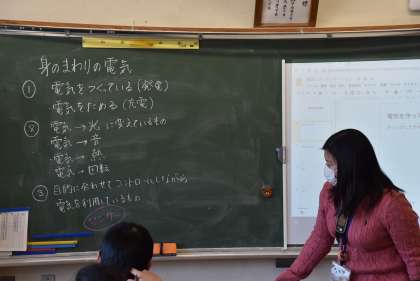 身のまわりの電気
① 電気をつくっている(発電)
・電気をためる(充電)
② 電気→光 に変えているもの
・電気→音
・電気→熱
電気→回転
③ 目的に合わせてコントロールしながら
電気を利用しているもの
センサー
電気を作って